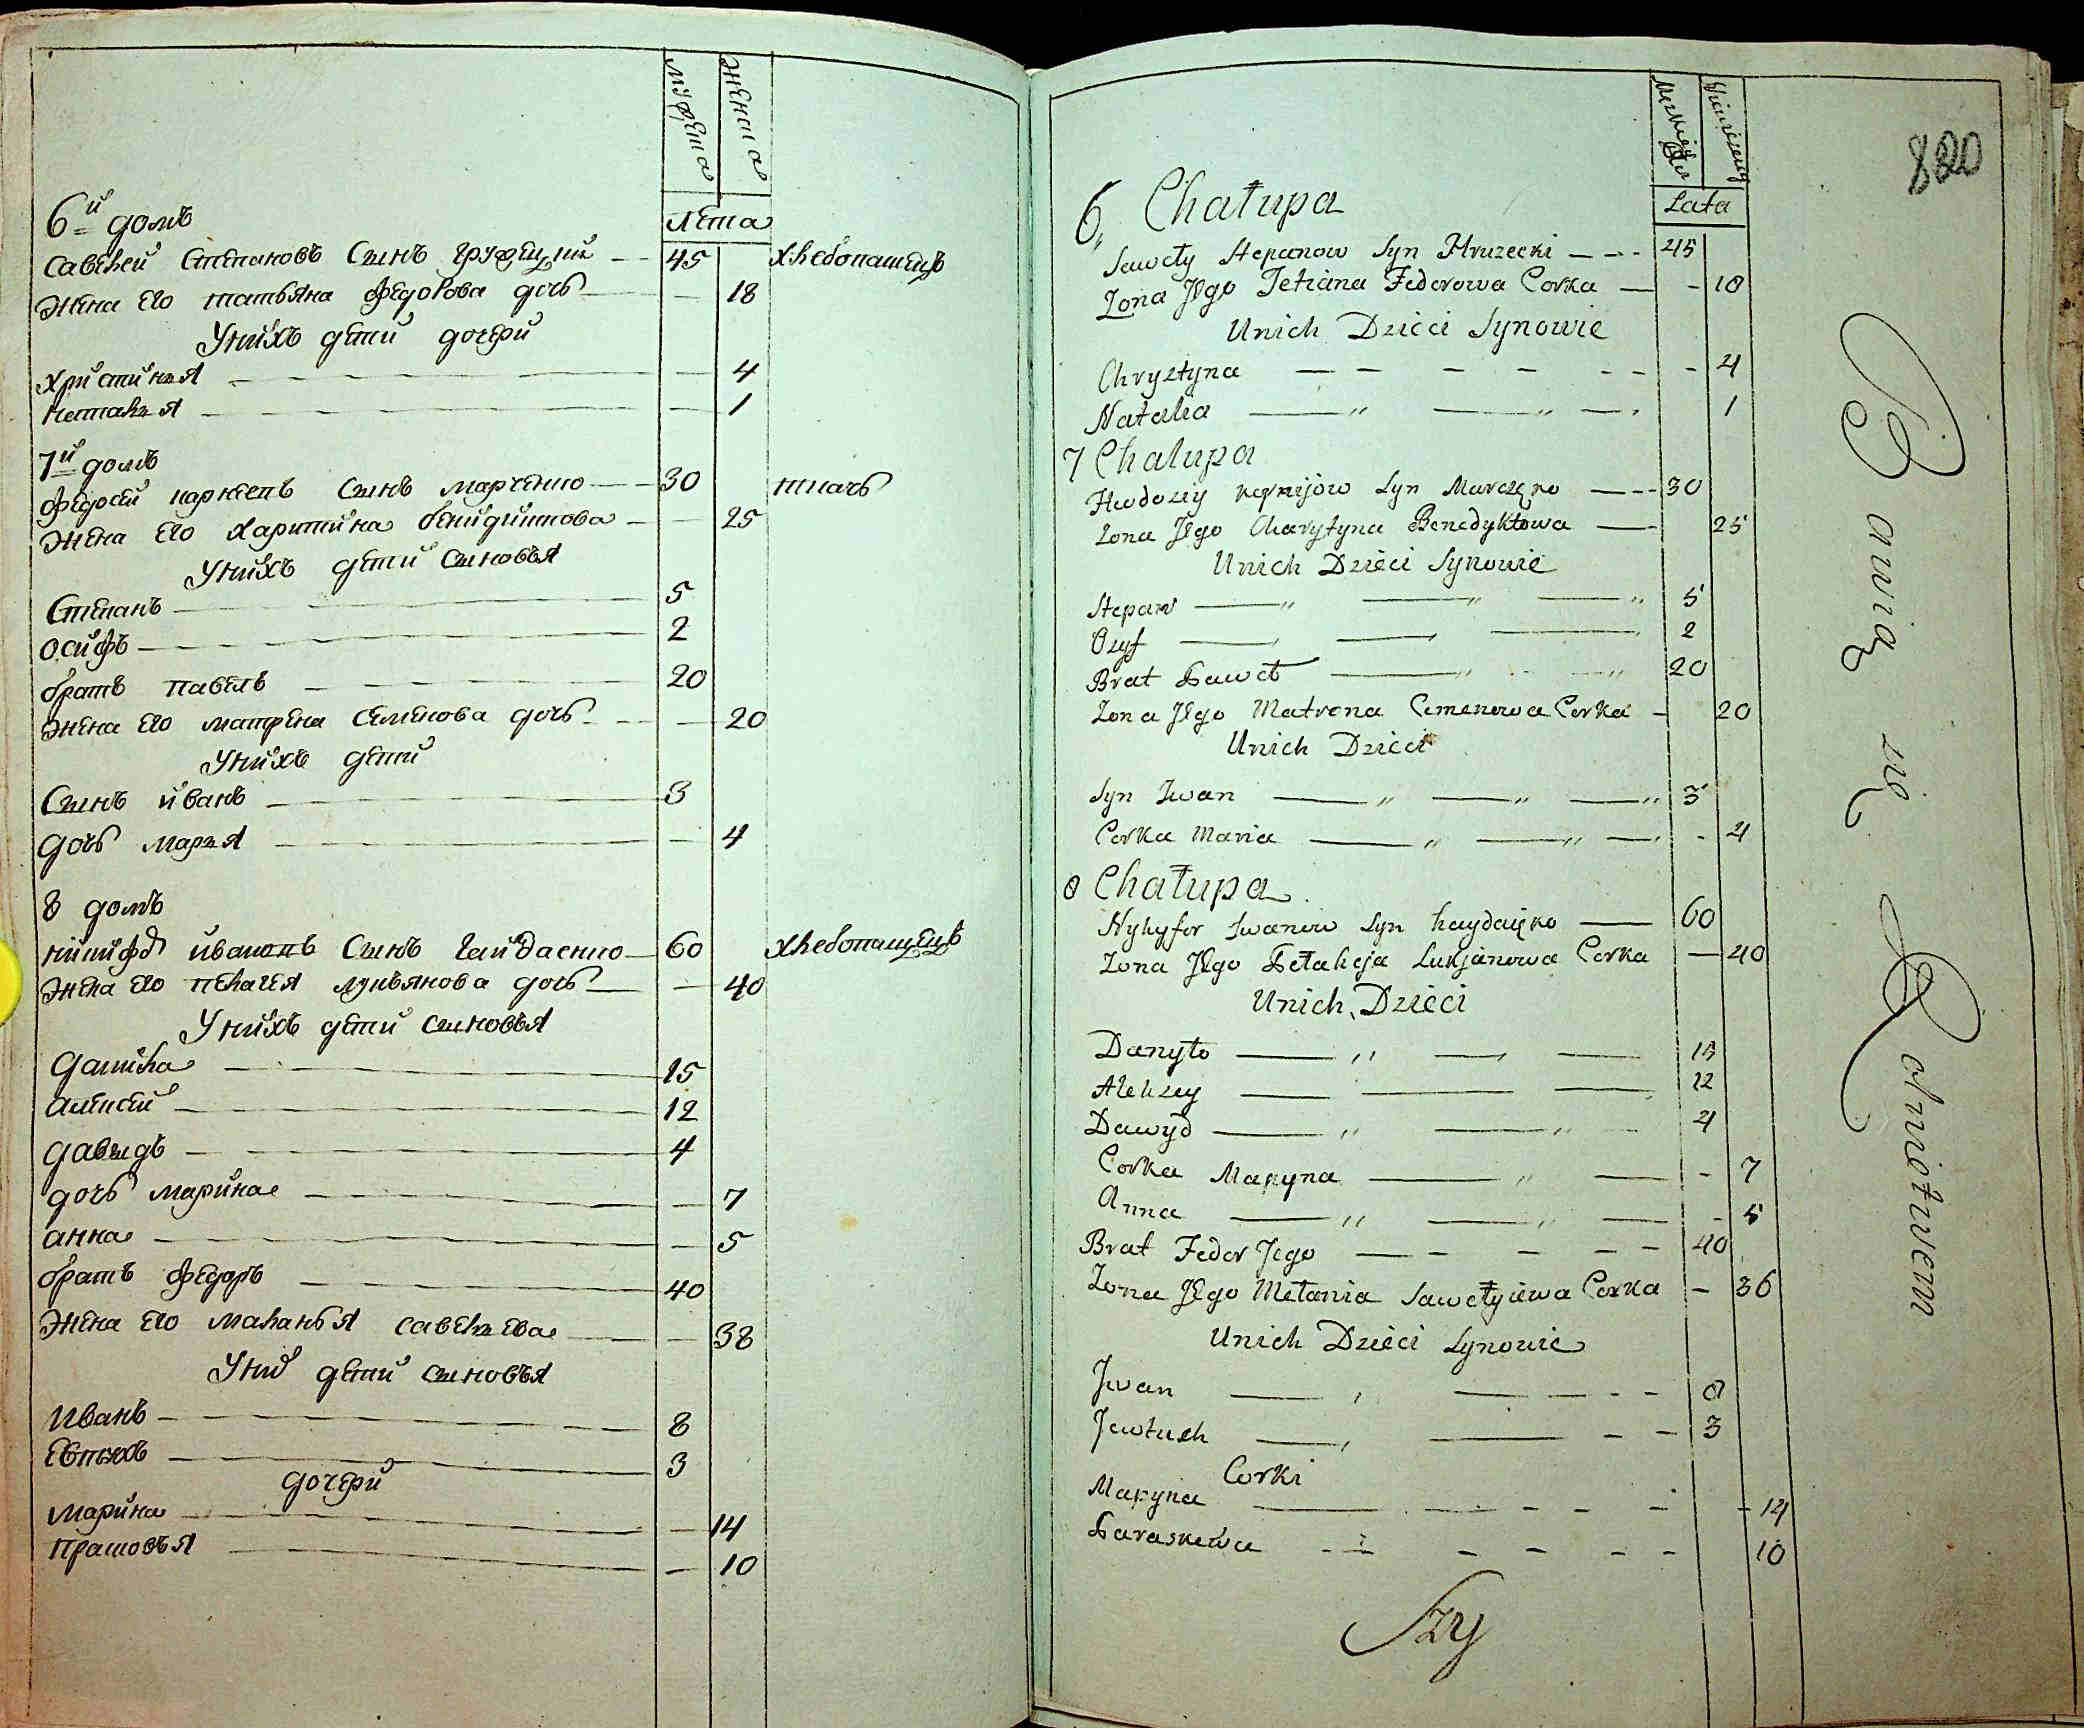 мужеска
женска
Лета
6й домъ
Савелей Степановъ Сынъ Грузецкий 45 хлебопашецъ
жена его татьяна федорова дочь 18
У нихъ дети дочери
христинья 4
наталья 1
7й домъ
федосей карнеевъ Сынъ марченко 30 ткачь
жена его харитина бенидиктова 25
У нихъ дети сыновья
Степанъ 5
осифъ 2
братъ павелъ 20
жена его матрена семенова дочь 20
У нихъ дети
Сынъ иванъ 3
дочь марья 4
8 домъ
никифоръ ивановъ Сынъ Гайдаенко 60 хлебопашецъ
жена его пелагея лукьянова дочь 40
У нихъ дети сыновья
данила 15
алексей 12
давыдъ 4
дочь марина 7
анна 5
братъ федоръ 40
жена его маланья савельева 38
У них дети сыновья
Иванъ 8
евтухъ 3
дочери
марина 14
прасковья 10
820
Lata
6, Chałupa
Sawcły Stepanow Syn Hruzecki 45
Zona Jego Tetiana Fedorowa Corka 18
Unich Dzieci Synowie
Chrystyna 4
Natalia 1
7 Chalupa
Hwdozey Kornijow Syn Marczęko 30
Zona Jego Charytyna Benedyktowa 25
Unich Dzieci Synowie
Stepan 5
Ozyf 2
Brat Paweł 20
Zona Jego Matrona Cemenowa Corka 20
Unich Dzieci
Syn Iwan 3
Corka Maria 4
8 Chałupa
Nykyfor Iwanow Syn haydaięko 60
Zona Jego Pełaheja Lukjanowa Corka 40
Unich Dzieci
Danyło 15
Alekzey 12
Dawyd 4
Corka Maryna 7
Anna 5
Brat Fedor Jego 40
Zona Jego Mełania Sawełyiewa Corka 36
Unich Dzieci Synowie
Jwan 8
Jewtuch 3
Corki
Maryna 14
Paraskewa 10
Szy
Bawią się Rolnictwem